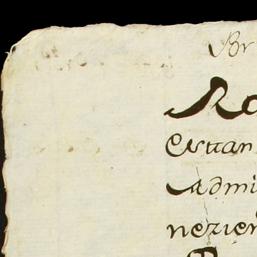 Br
Ro
estan
admi
nezien